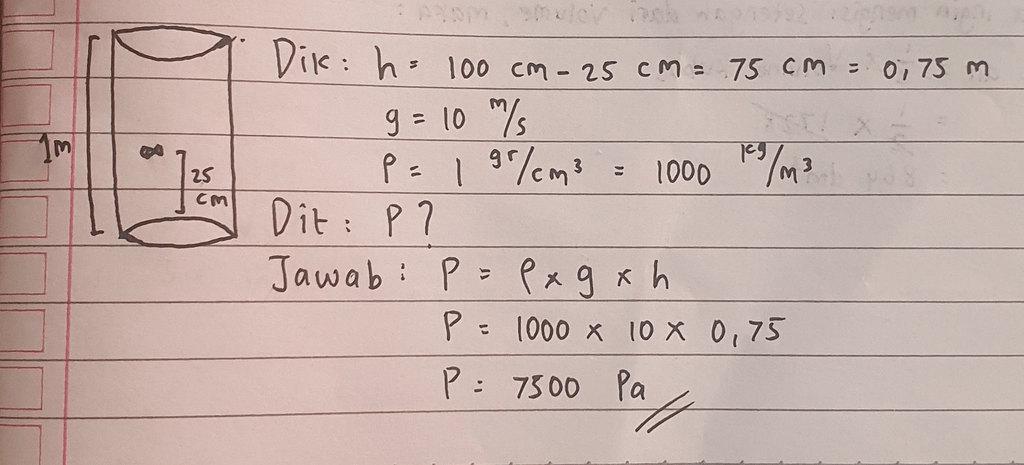 1m
25
cm
Dik : h = 100 cm - 25 cm = 75 cm = 0,75 m
g = 10 m/s
ρ = 1 gr/cm³ = 1000 kg/m³
Dit : P ?
Jawab : P = ρ x g x h
P = 1000 x 10 x 0,75
P = 7500 Pa